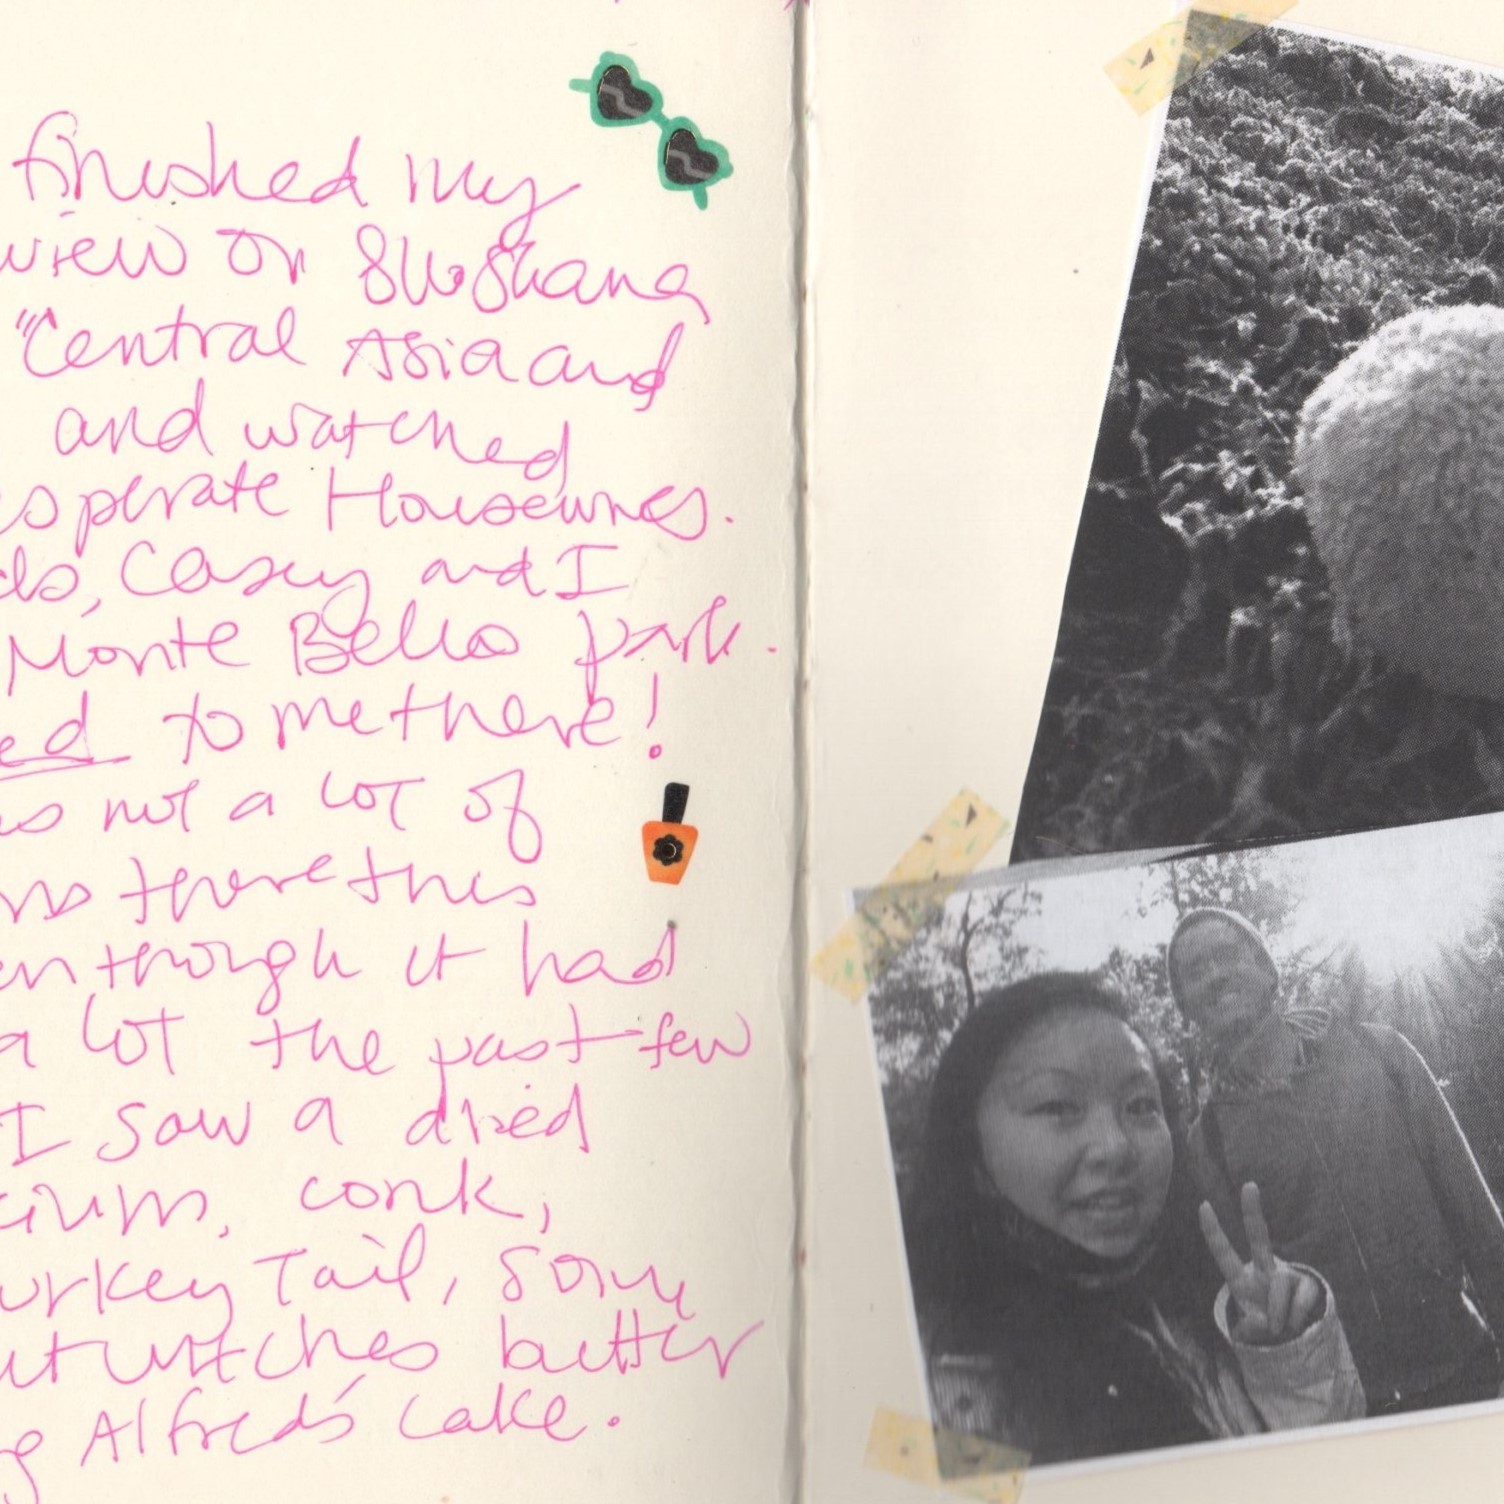 finished my
view on Shoshana
"Central Asia and
and watched
esperate Housewives.
ds, Casey and I
Monte Bello park.
ed to me there!
as not a lot of
ms there this
en though it had
a lot the past few
I saw a dried
cium, conk,
urkey Tail, some
ut witches butter
g Alfred's Cake.